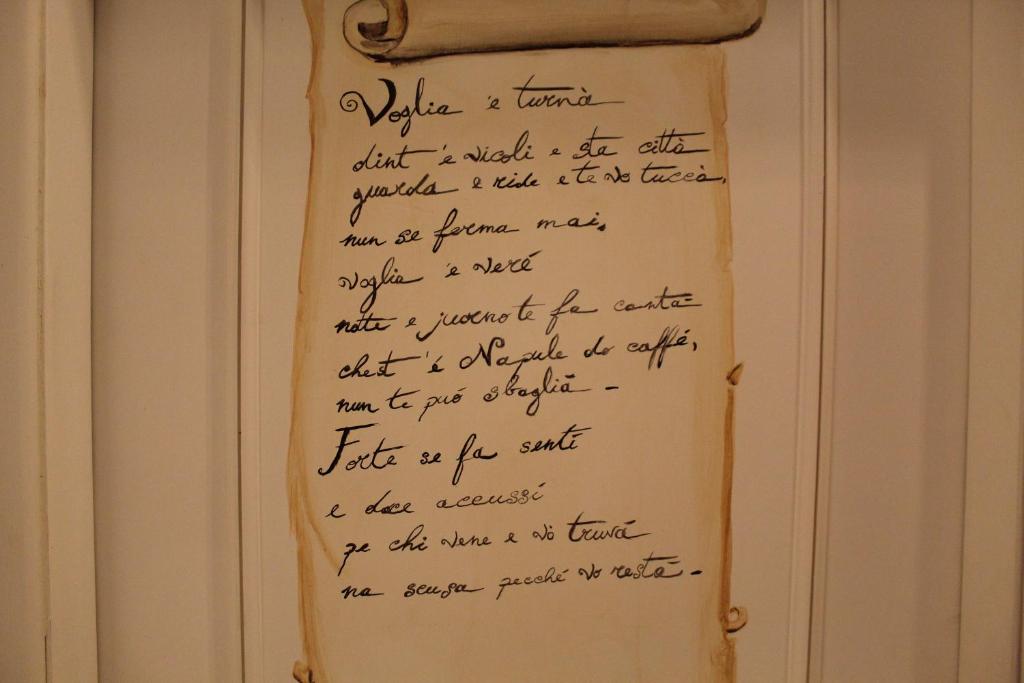 Voglia 'e turnà
dint 'e vicoli e sta città
guarda e ride e te vo tuccà,
nun se ferma mai,
voglia 'e veré
notte e juorno te fa cantà
chest 'é Napule do caffé,
nun te può sbaglià -
Forte se fa sentí
e doce accussí
pe chi vene e vò truvá
na scusa pecché vo restá -